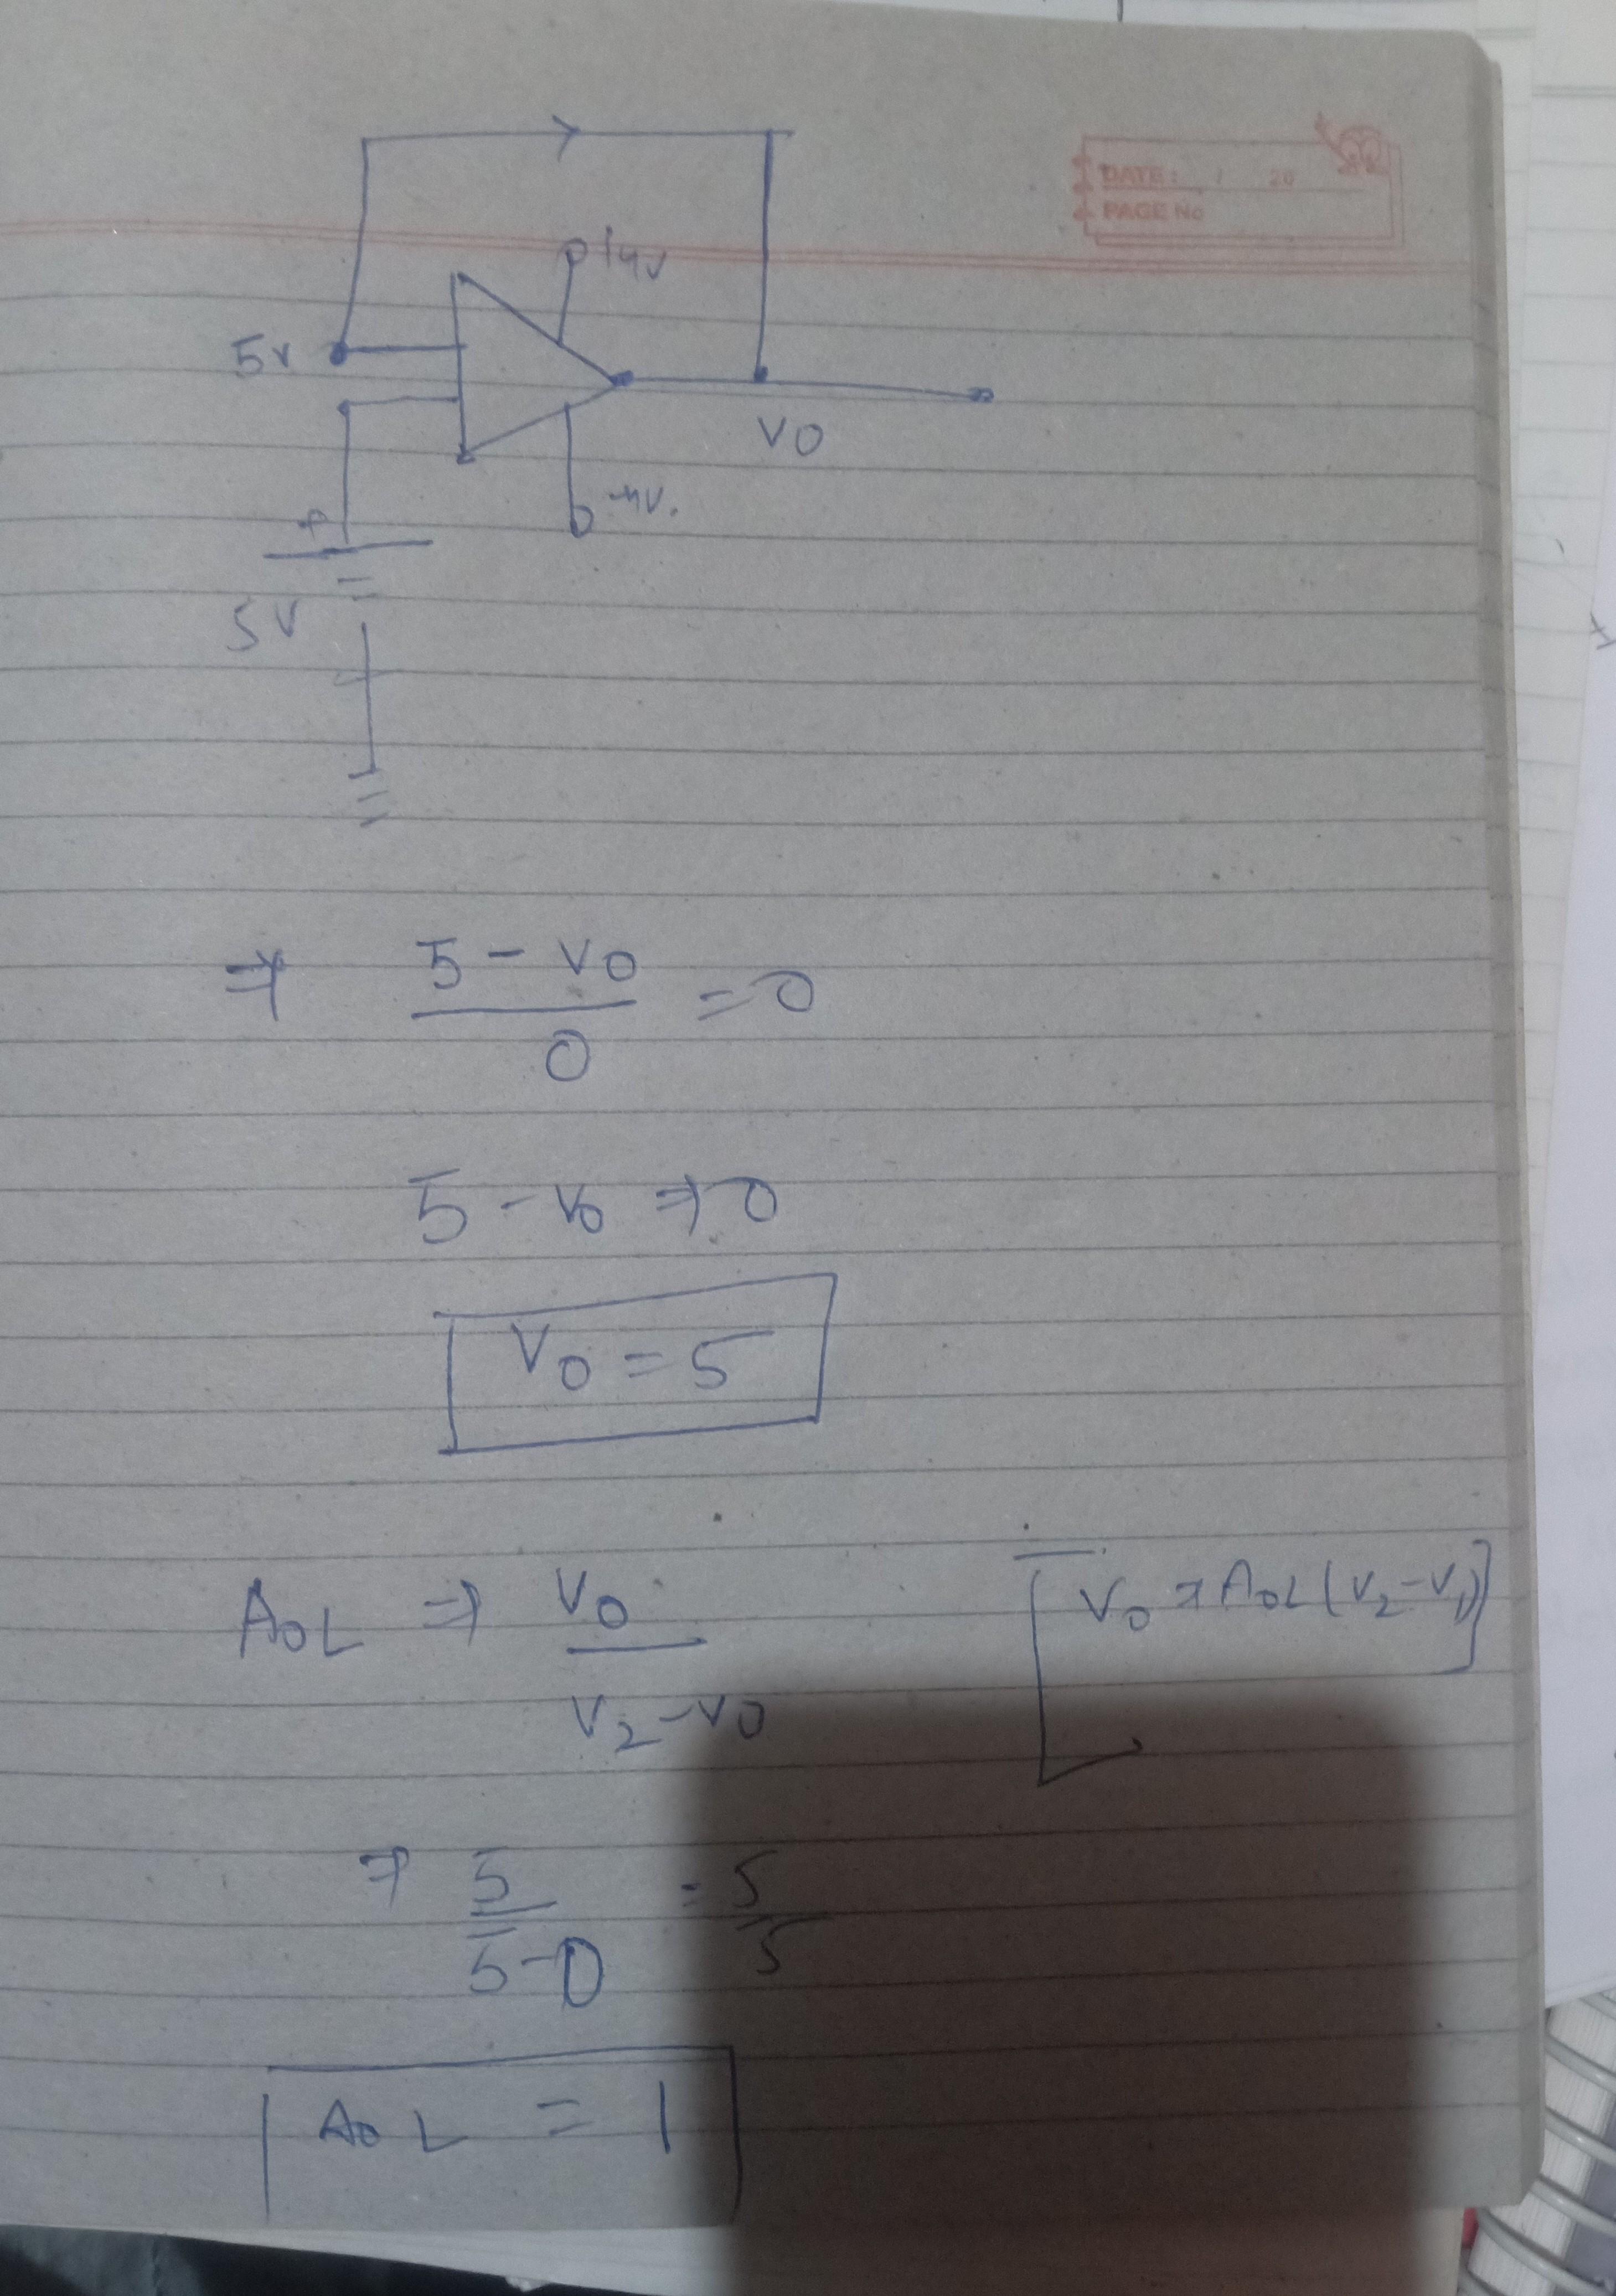 DATE: / 20
PAGE No
+4V
5V
VO
-4V.
+
5V
⇒ 5 - VO / 0 = 0
5 - V0 ⇒ 0
VO = 5
AOL ⇒ VO / V2 - VO
VO = AOL (V2 - V1)
⇒ 5 / 5 - 0 = 5 / 5
AOL = 1